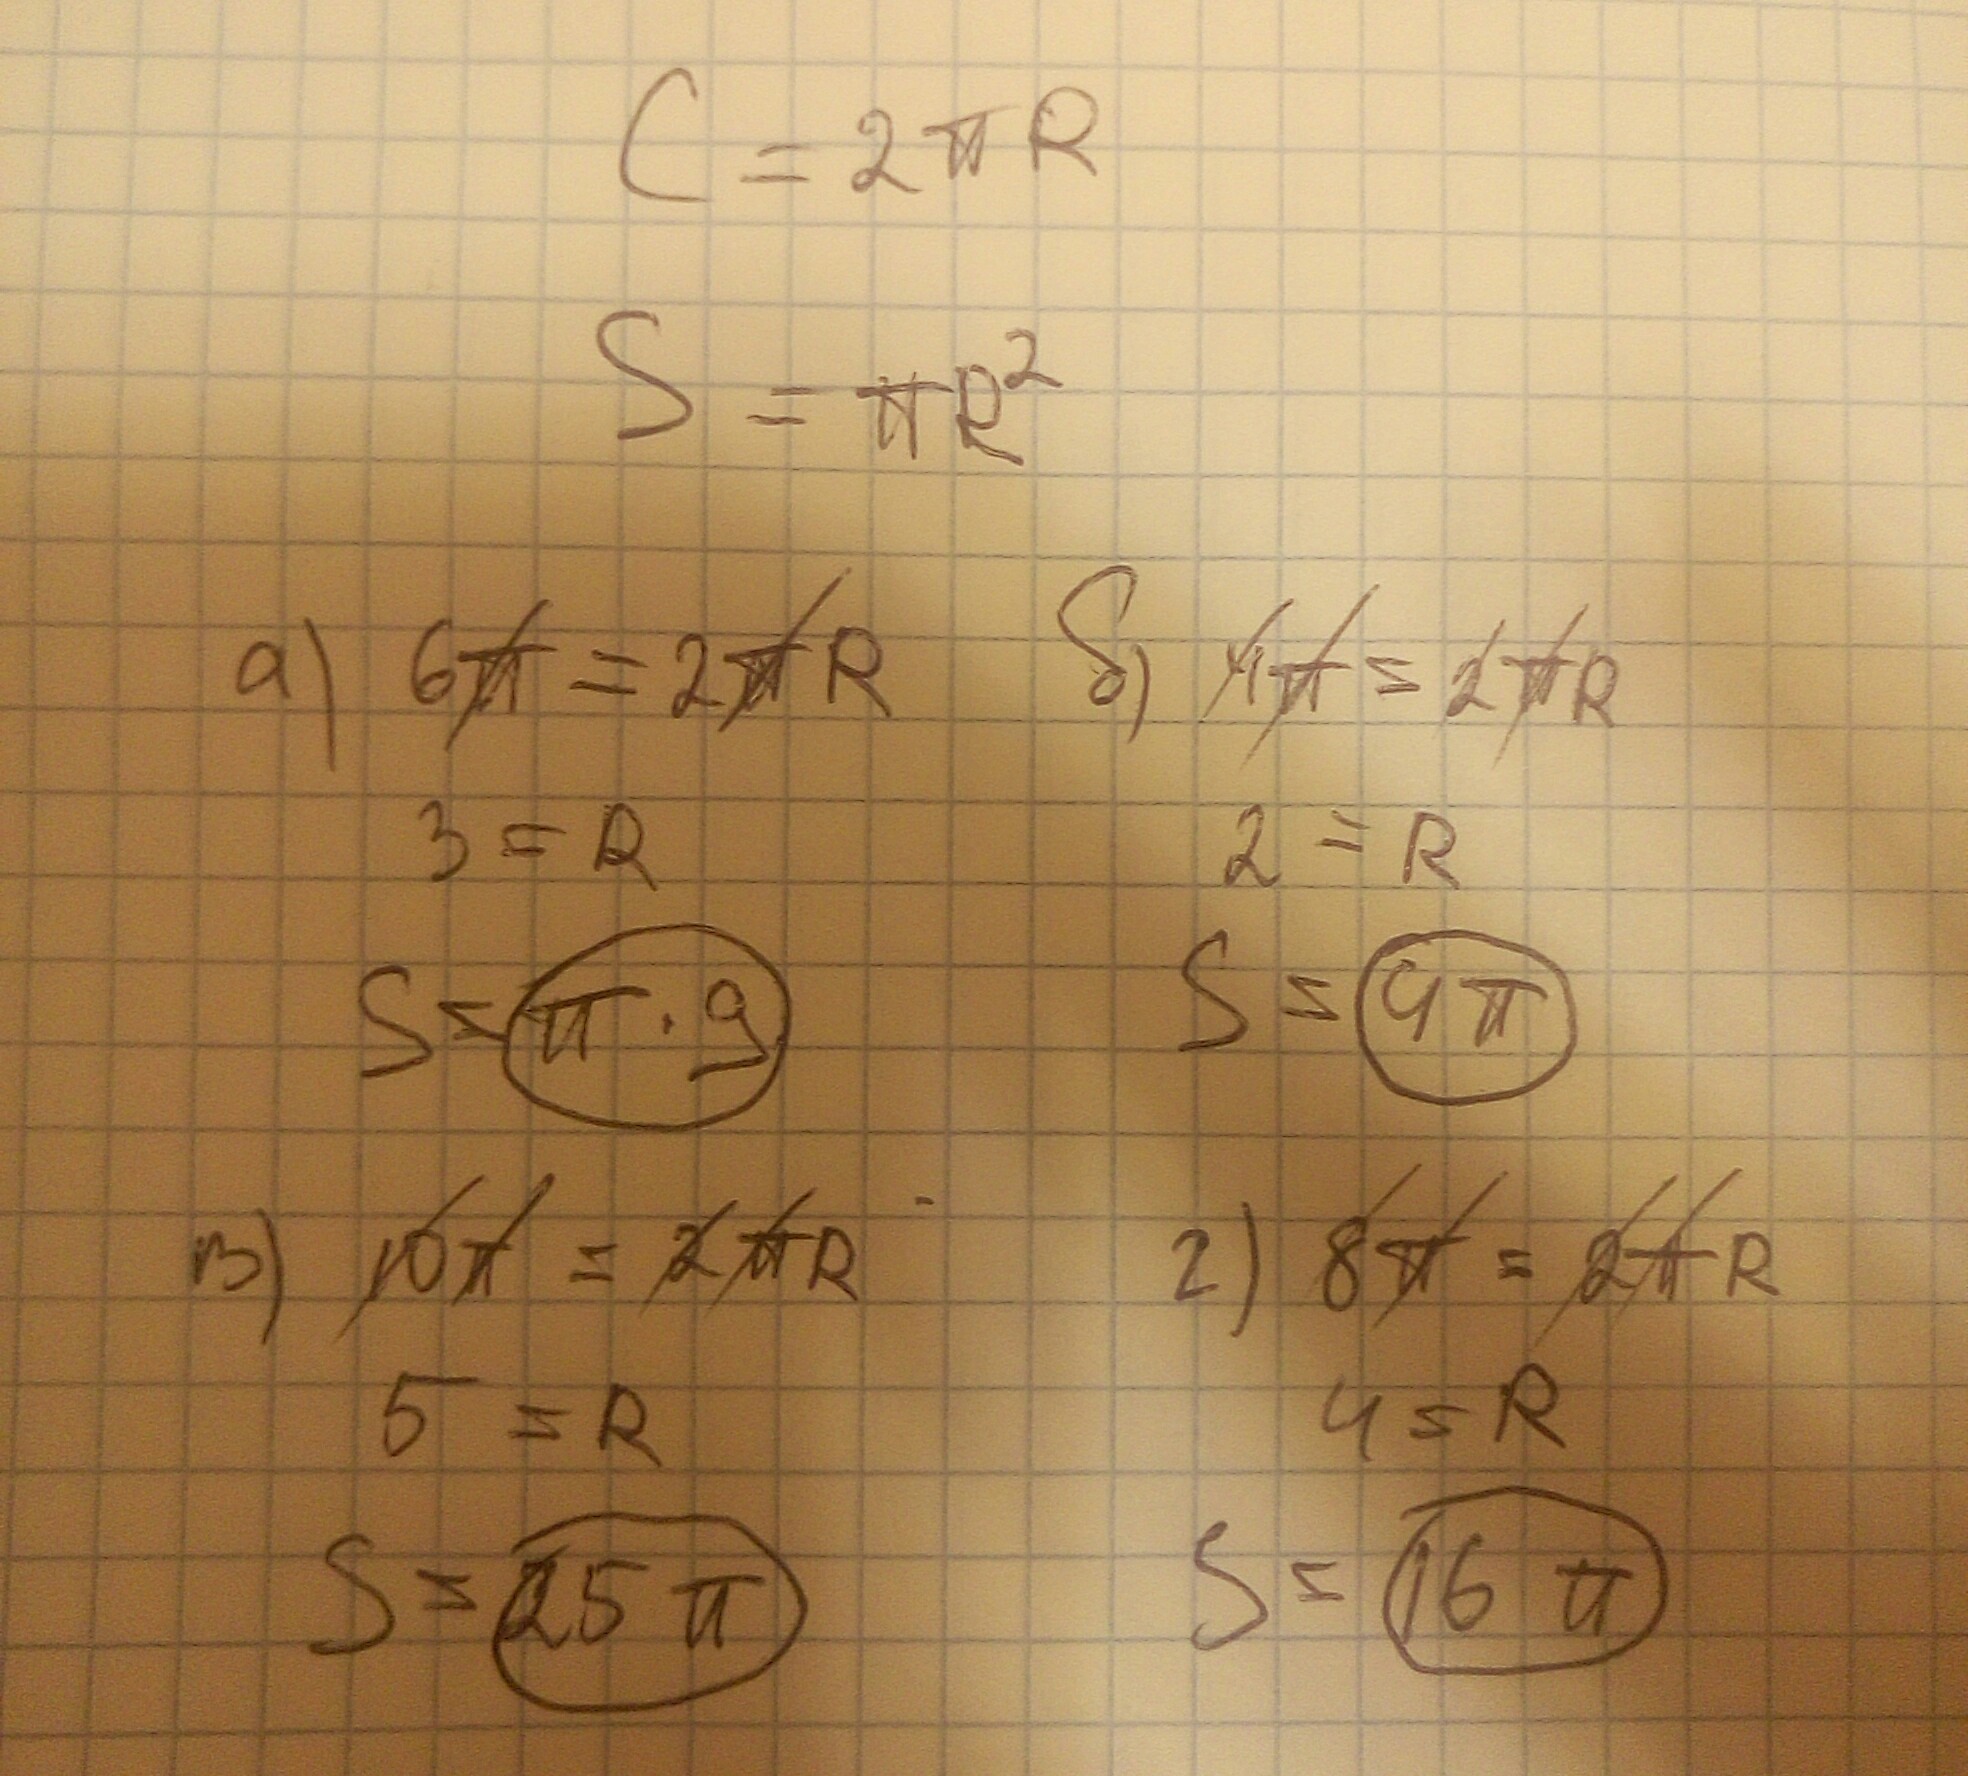 C = 2πR
S = πR²
а) 6π = 2πR
3 = R
S = π · 9
б) 4π = 2πR
2 = R
S = 4π
в) 10π = 2πR
5 = R
S = 25π
г) 8π = 2πR
4 = R
S = 16π